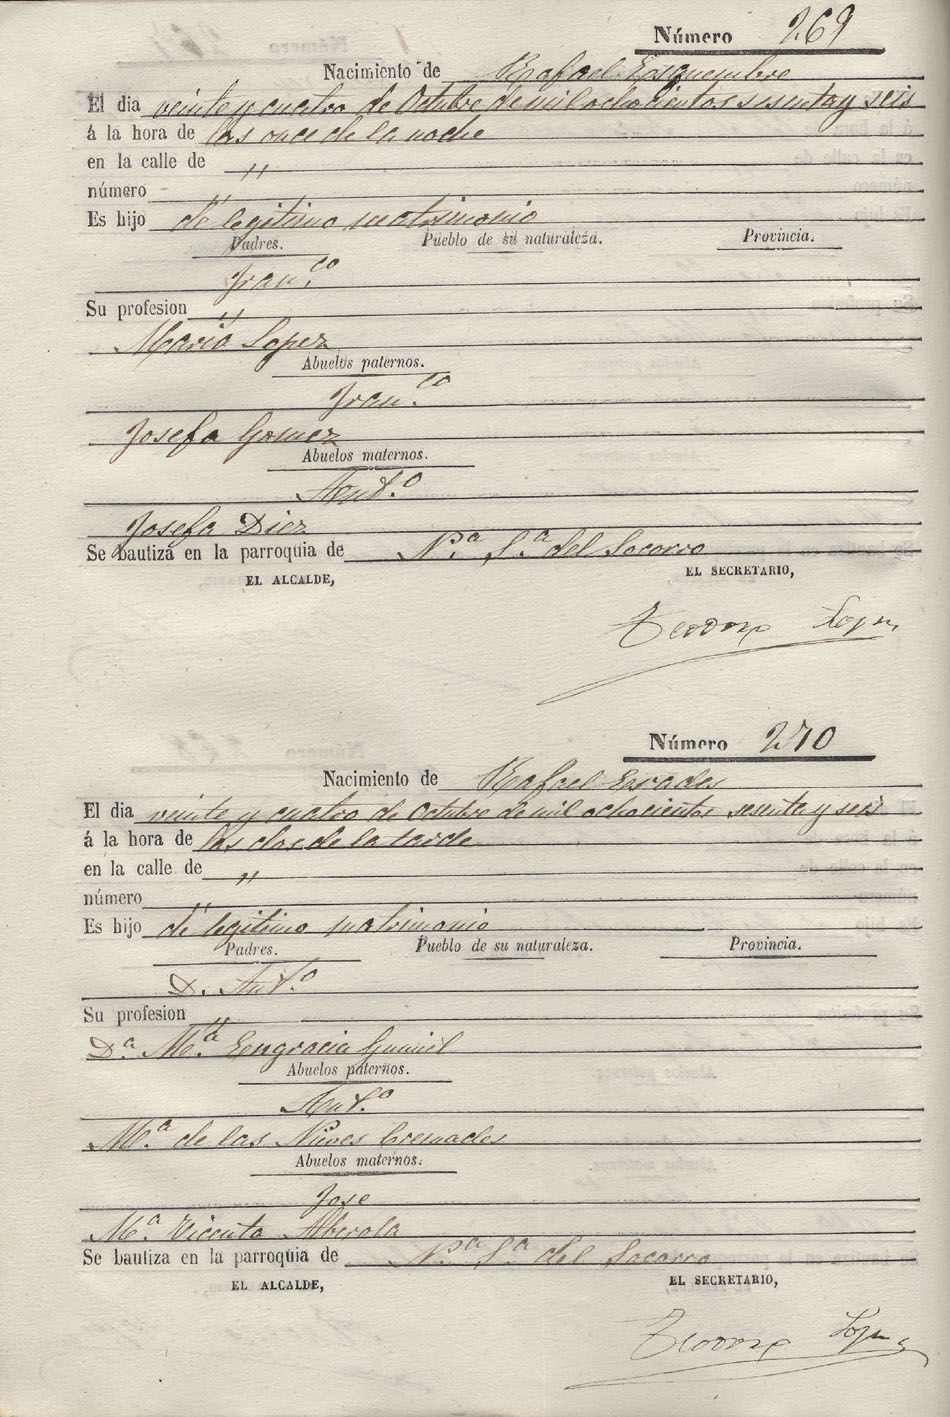 Número 269
Nacimiento de Rafael Esquembre
El dia veinte y cuatro de Octubre de mil ochocientos sesenta y seis
á la hora de las once de la noche
en la calle de "
número "
Es hijo de legitimo matrimonio
Padres. Pueblo de su naturaleza. Provincia.
Fran.co
Su profesion "
Maria Lopez
Abuelos paternos.
Fran.co
Josefa Gomez
Abuelos maternos.
Ant.o
Josefa Diez
Se bautiza en la parroquia de N.a S.a del Socorro
EL ALCALDE, EL SECRETARIO,
Teodoro Lopez
Número 270
Nacimiento de Rafael
El dia veinte y cuatro de Octubre de mil ochocientos sesenta y seis
á la hora de las dos de la tarde
en la calle de "
número "
Es hijo de legitimo matrimonio
Padres. Pueblo de su naturaleza. Provincia.
D. Ant.o
Su profesion "
D.a M.a Engracia
Abuelos paternos.
Ant.o
M.a de las Nieves Cremades
Abuelos maternos.
Jose
M.a Vicenta Alberola
Se bautiza en la parroquia de N.a S.a del Socorro
EL ALCALDE, EL SECRETARIO,
Teodoro Lopez